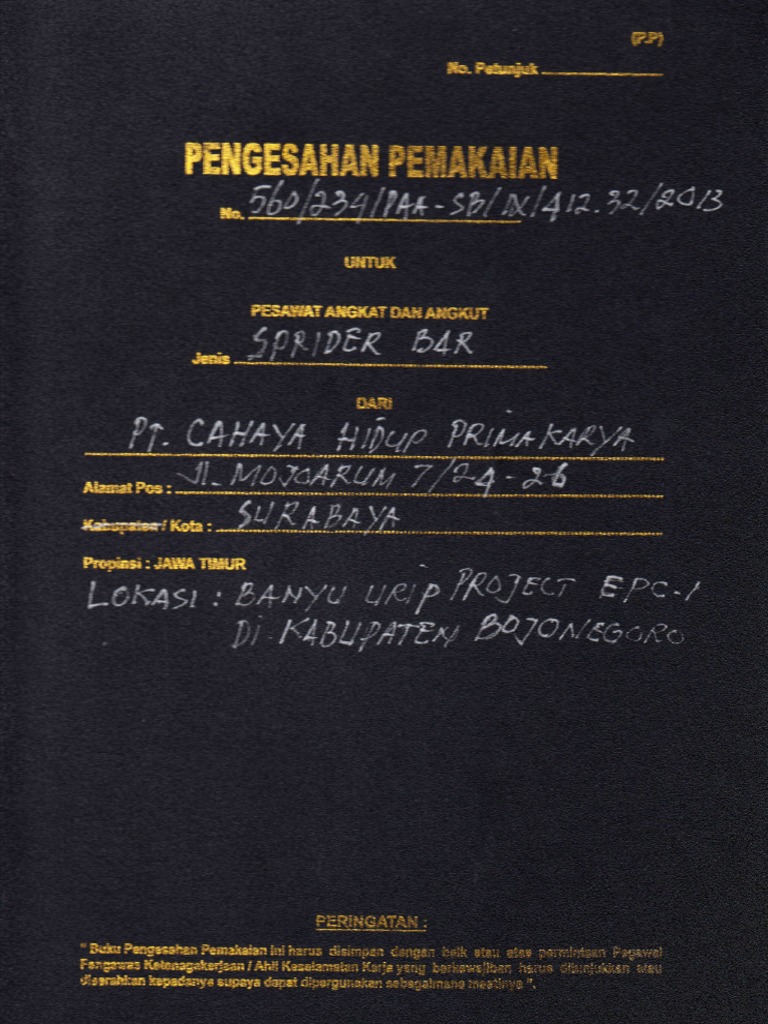 (P.P)
No. Petunjuk
PENGESAHAN PEMAKAIAN
No. 560/234/PAA-SB/IX/412.32/2013
UNTUK
PESAWAT ANGKAT DAN ANGKUT
Jenis SPRIDER BAR
DARI
PT. CAHAYA HIDUP PRIMAKARYA
Alamat Pos : Jl. MOJOARUM 7/24-26
Kabupaten / Kota : SURABAYA
Propinsi : JAWA TIMUR
LOKASI : BANYU URIP PROJECT EPC-1
DI KABUPATEN BOJONEGORO
PERINGATAN :
" Buku Pengesahan Pemakaian ini harus disimpan dengan baik atau atas permintaan Pegawai
Pengawas Ketenagakerjaan / Ahli Keselamatan Kerja yang berkewajiban harus ditunjukkan atau
diserahkan kepadanya supaya dapat dipergunakan sebagaimana mestinya ".